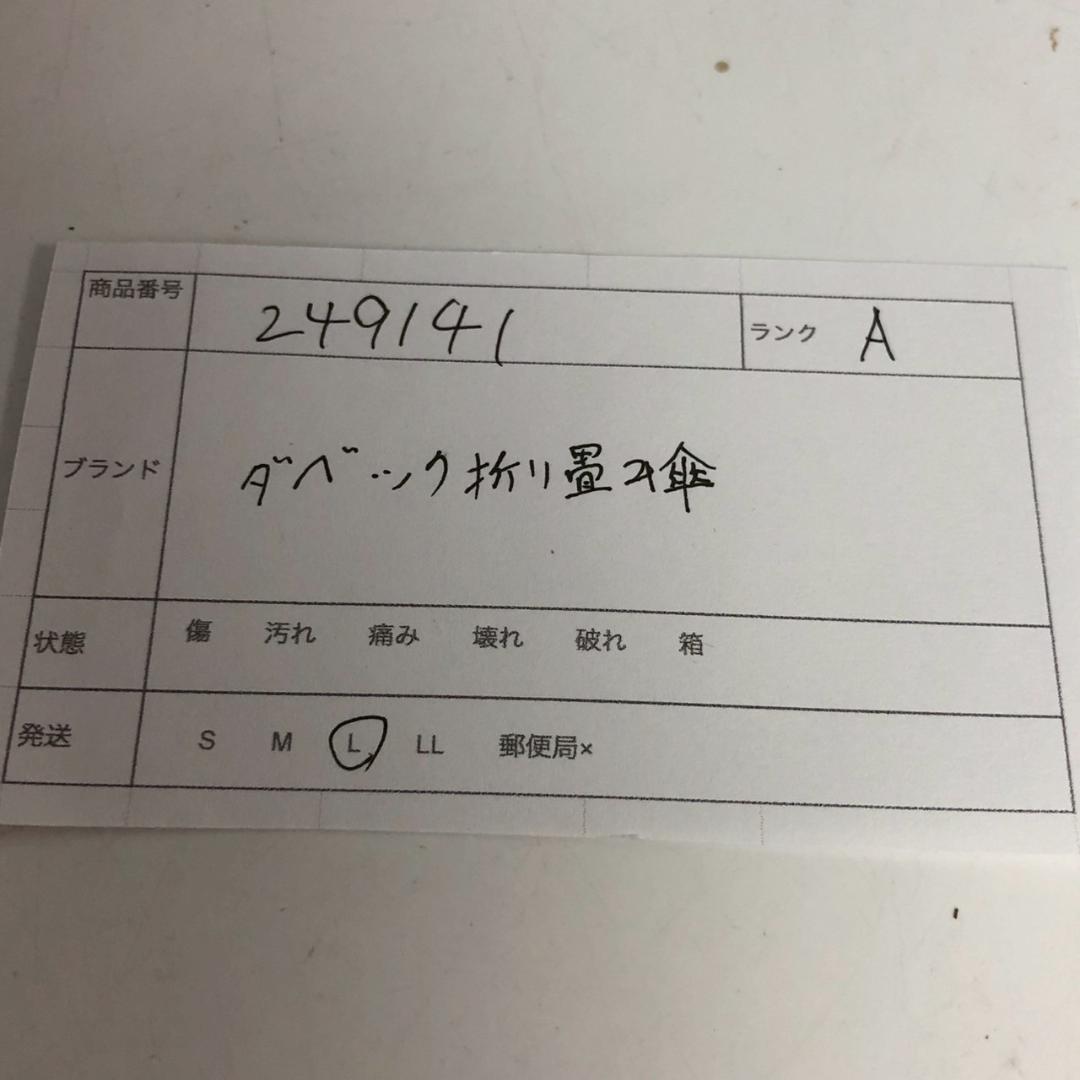 商品番号 249141 ランク A
ブランド ダベック折り畳み傘
状態 傷 汚れ 痛み 壊れ 破れ 箱
発送 S M L LL 郵便局×